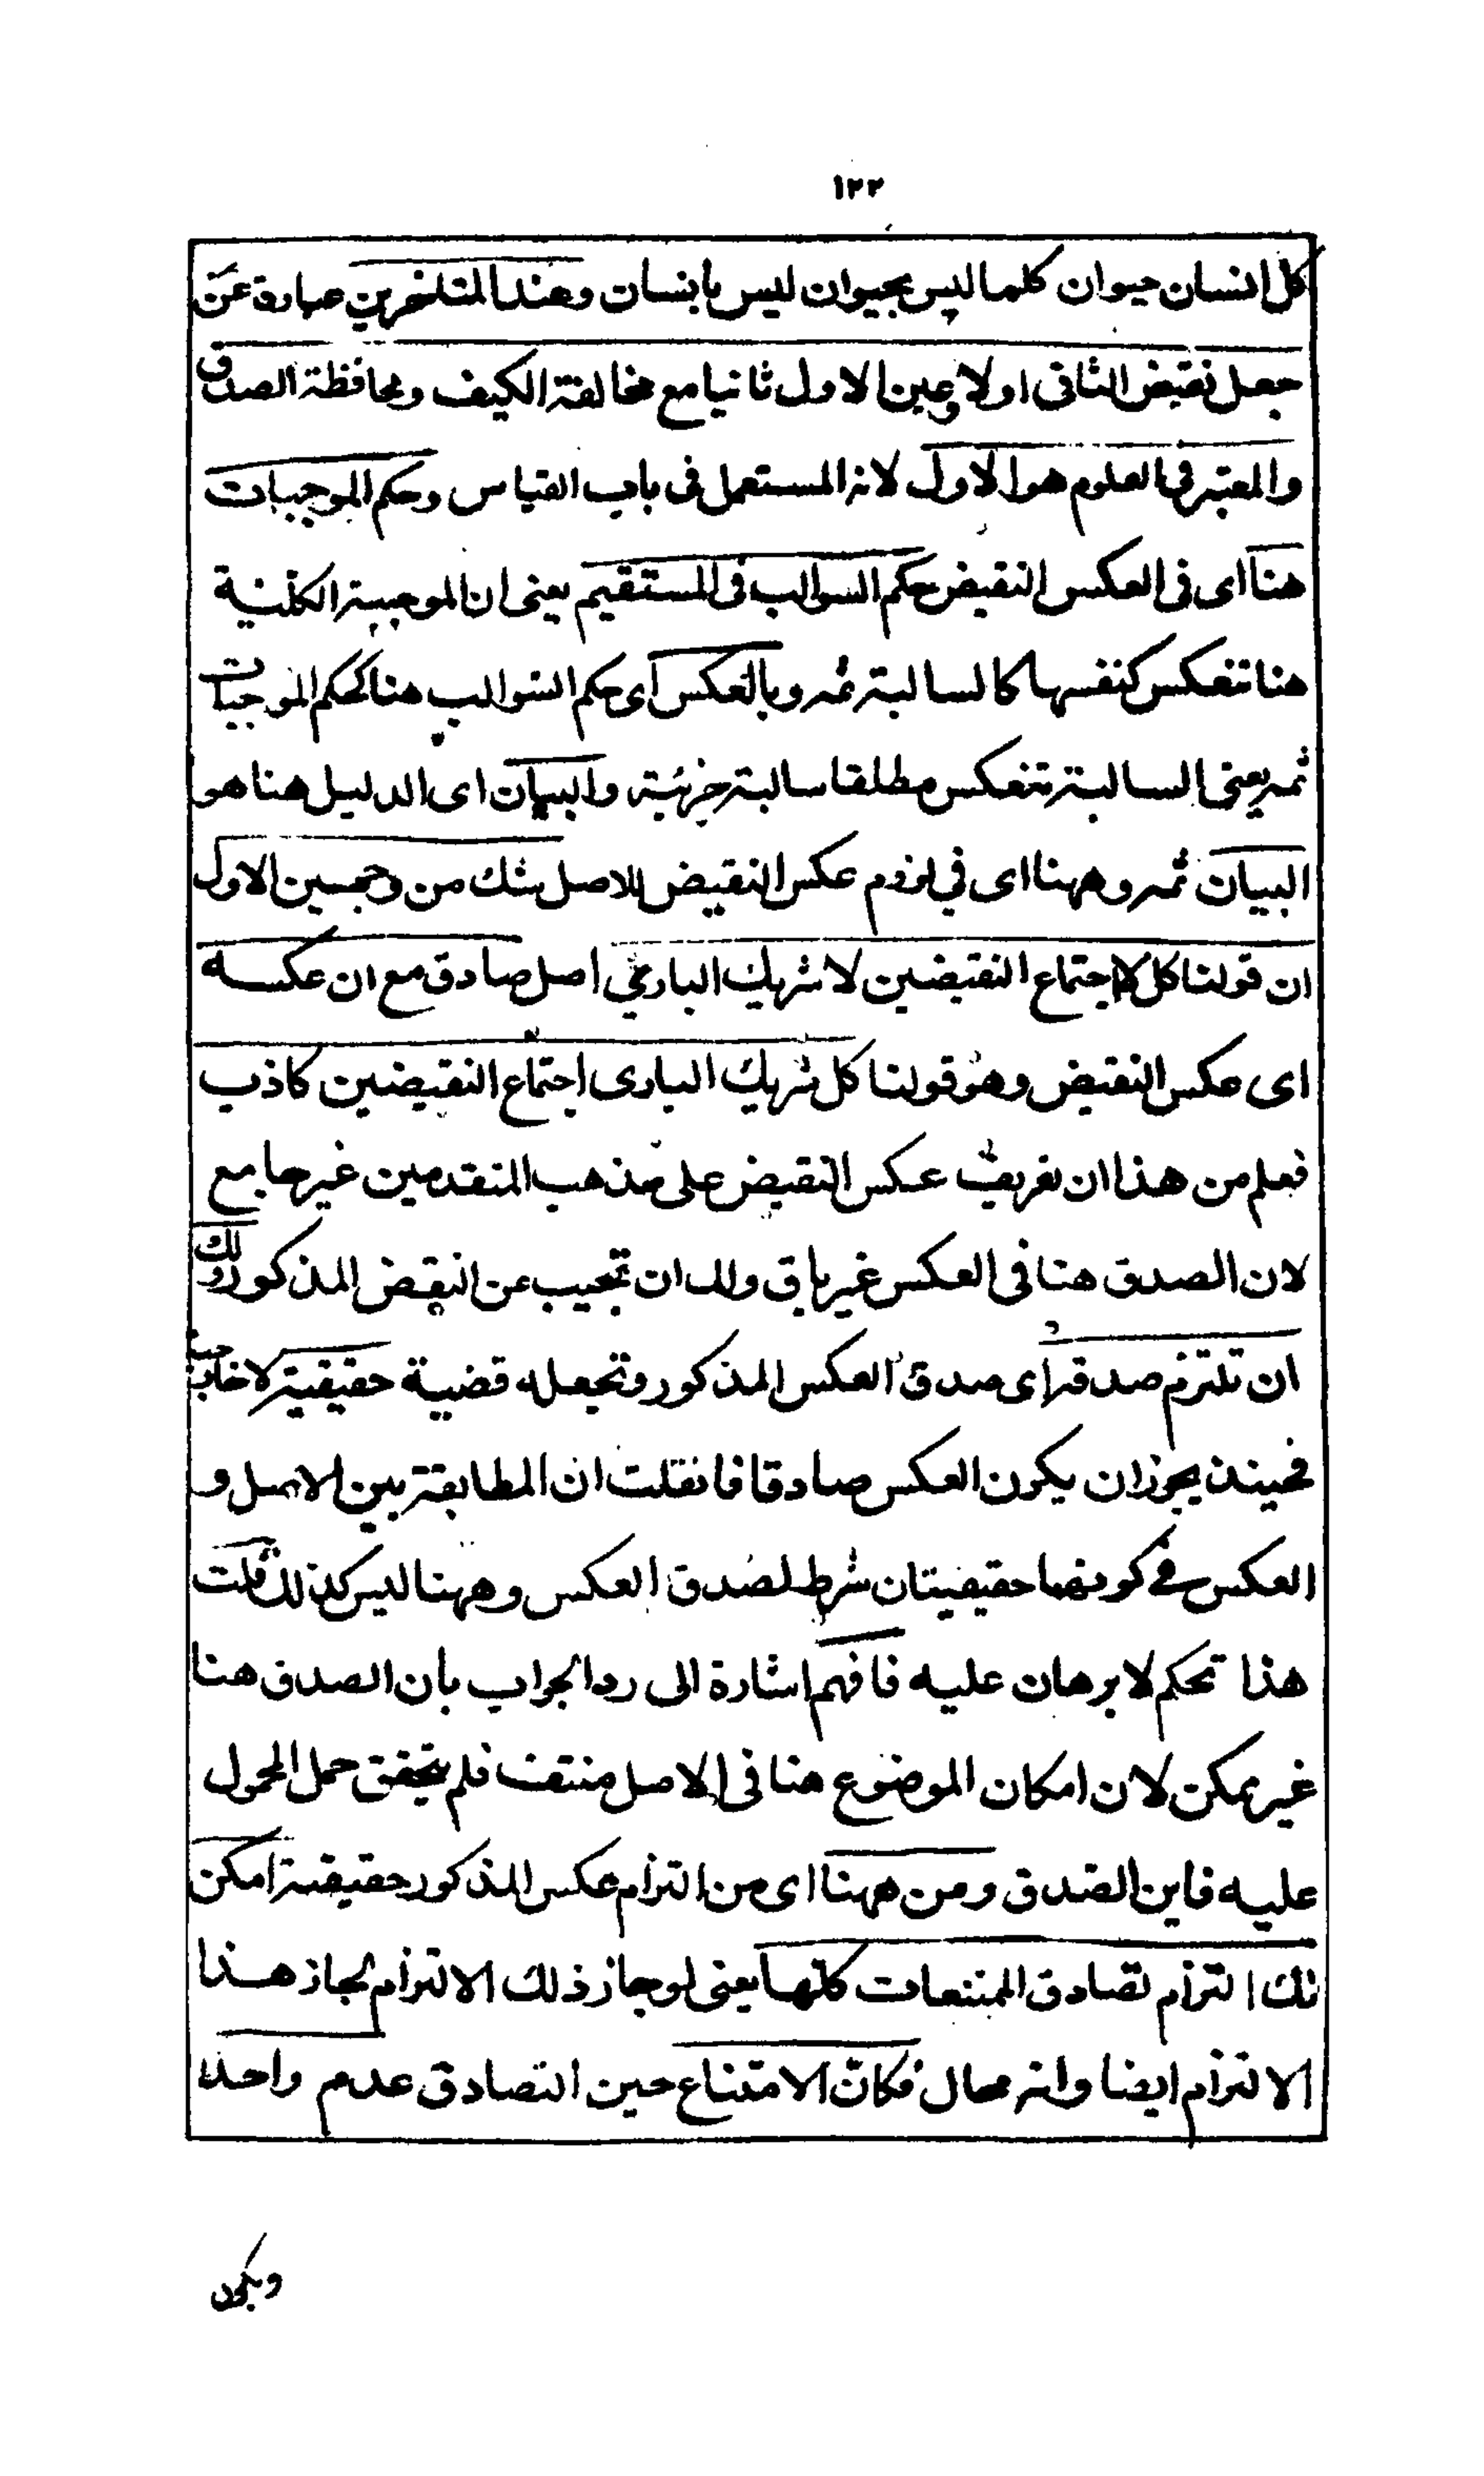 ١٢٢
كل انسان حيوان كلما ليس بحيوان ليس بانسان وعند المتأخرين عبارة عن
جعل نقيض الثانى اولا وعين الاول ثانيا مع مخالفة الكيف ومحافظة الصدق
والمعتبر فى العلوم هو الاول لانه المستعمل فى باب القياس وحكم الموجبات
هنا اى فى العكس النقيض حكم السوالب فى المستقيم يعنى ان الموجبة الكلية
هنا تنعكس كنفسها كالسالبة ثمه وبالعكس اى حكم السوالب هنا كحكم الموجبات
ثمه يعنى السالبة تنعكس مطلقا سالبة جزئية والبيان اى الدليل هنا هو
البيان ثمه وههنا اى في لزوم عكس النقيض للاصل شك من وجهين الاول
ان قولنا كل لا اجتماع النقيضين لا شريك البارى اصل صادق مع ان عكسه
اى عكس النقيض وهو قولنا كل شريك البارى اجتماع النقيضين كاذب
فعلم من هذا ان تعريف عكس النقيض على مذهب المتقدمين غير جامع
لان الصدق هنا فى العكس غير باق ولك ان تجيب عن النقض المذكور ولك
ان تلتزم صدقه اى صدق العكس المذكور وتجعله قضية حقيقية لا خارجية
فحينئذ يجوز ان يكون العكس صادقا فان قلت ان المطابقة بين الاصل و
العكس في كونهما حقيقيتان شرط لصدق العكس وههنا ليس كذلك قلت
هذا تحكم لا برهان عليه فافهم اشارة الى رد الجواب بأن الصدق هنا
غير ممكن لان امكان الموضوع هنا فى الاصل منتف فلم يتحقق حمل المحمول
عليه فاين الصدق ومن ههنا اى من التزام عكس المذكور حقيقية امكن
لك التزام تصادق الممتنعات كلها يعنى لو جاز ذلك الالتزام لجاز هذا
الالتزام ايضا وانه محال فكان الامتناع حين التصادق عدم واحد
ويكون